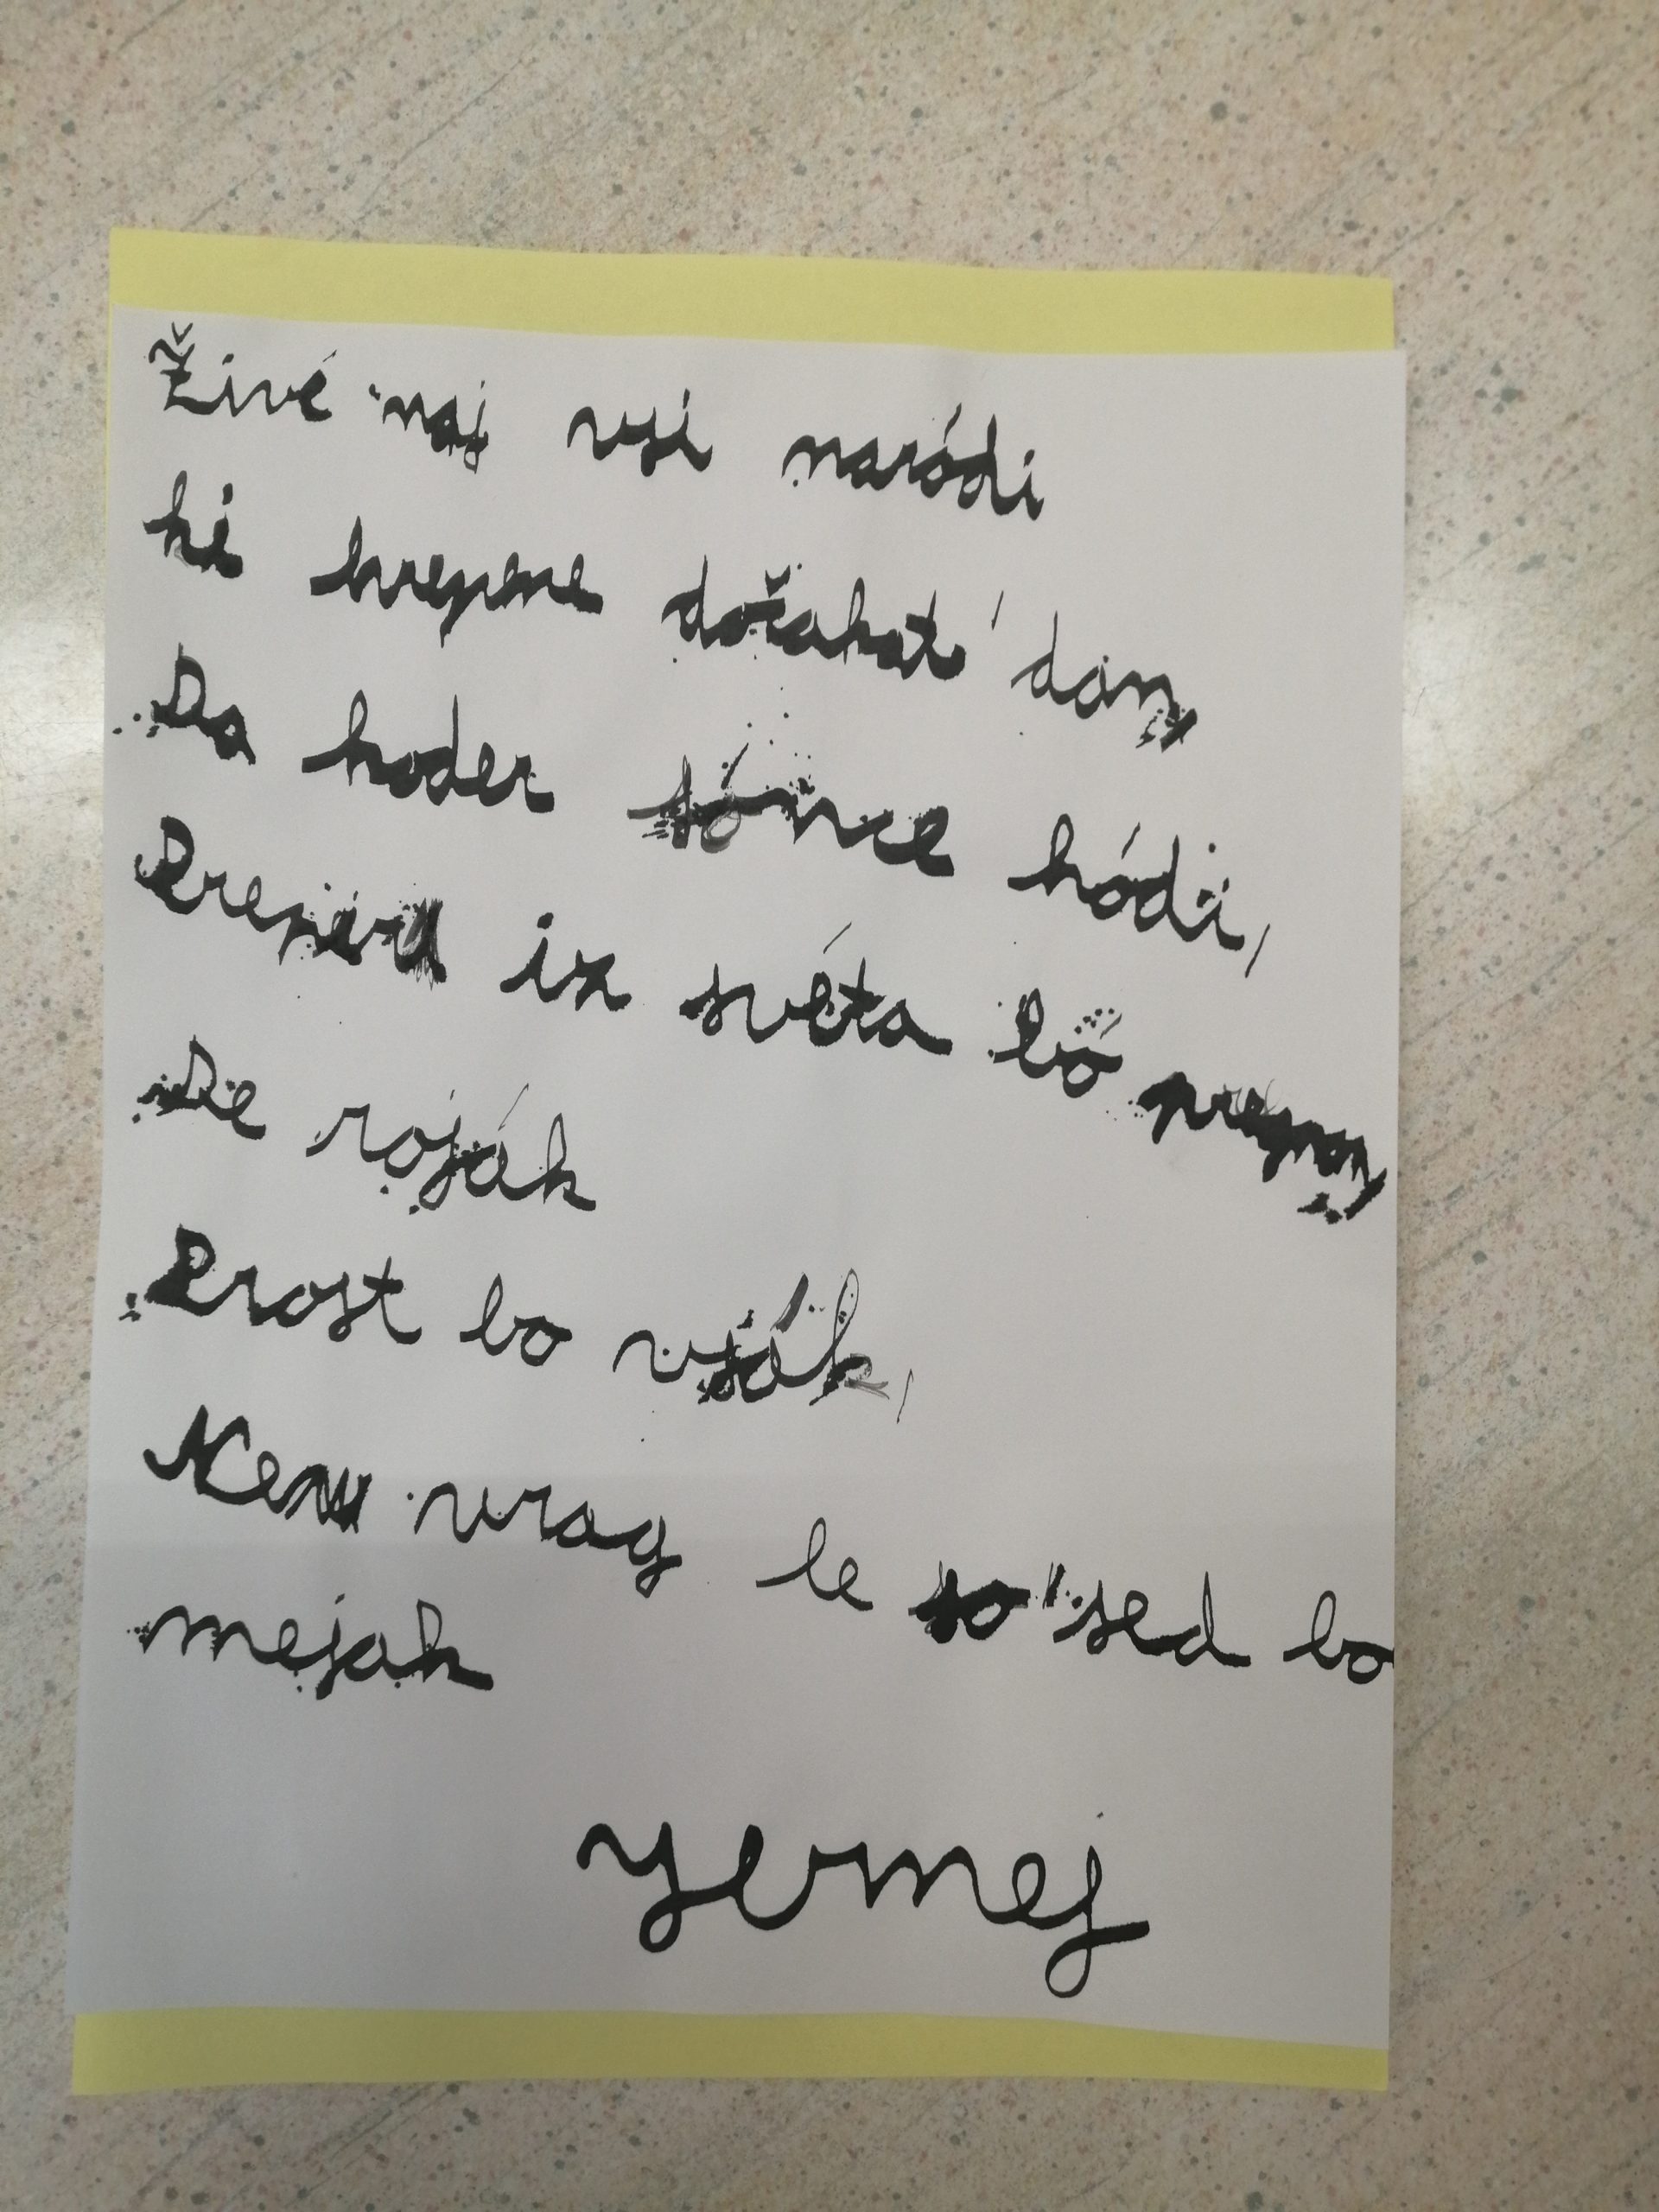 Živé naj vsi naródi
ki hrepene dočakat' dan,
Da koder sónce hódi,
Prepir iz svéta bó pregnan,
De roják
Prost bo vsák,
Ne vrag le so sed bo
mejak
Jernej